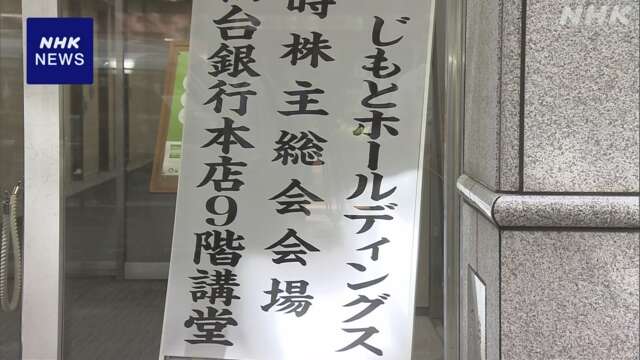 じもとホールディングス
時株主総会会場
台銀行本店9階講堂
NHK
NEWS
NHK